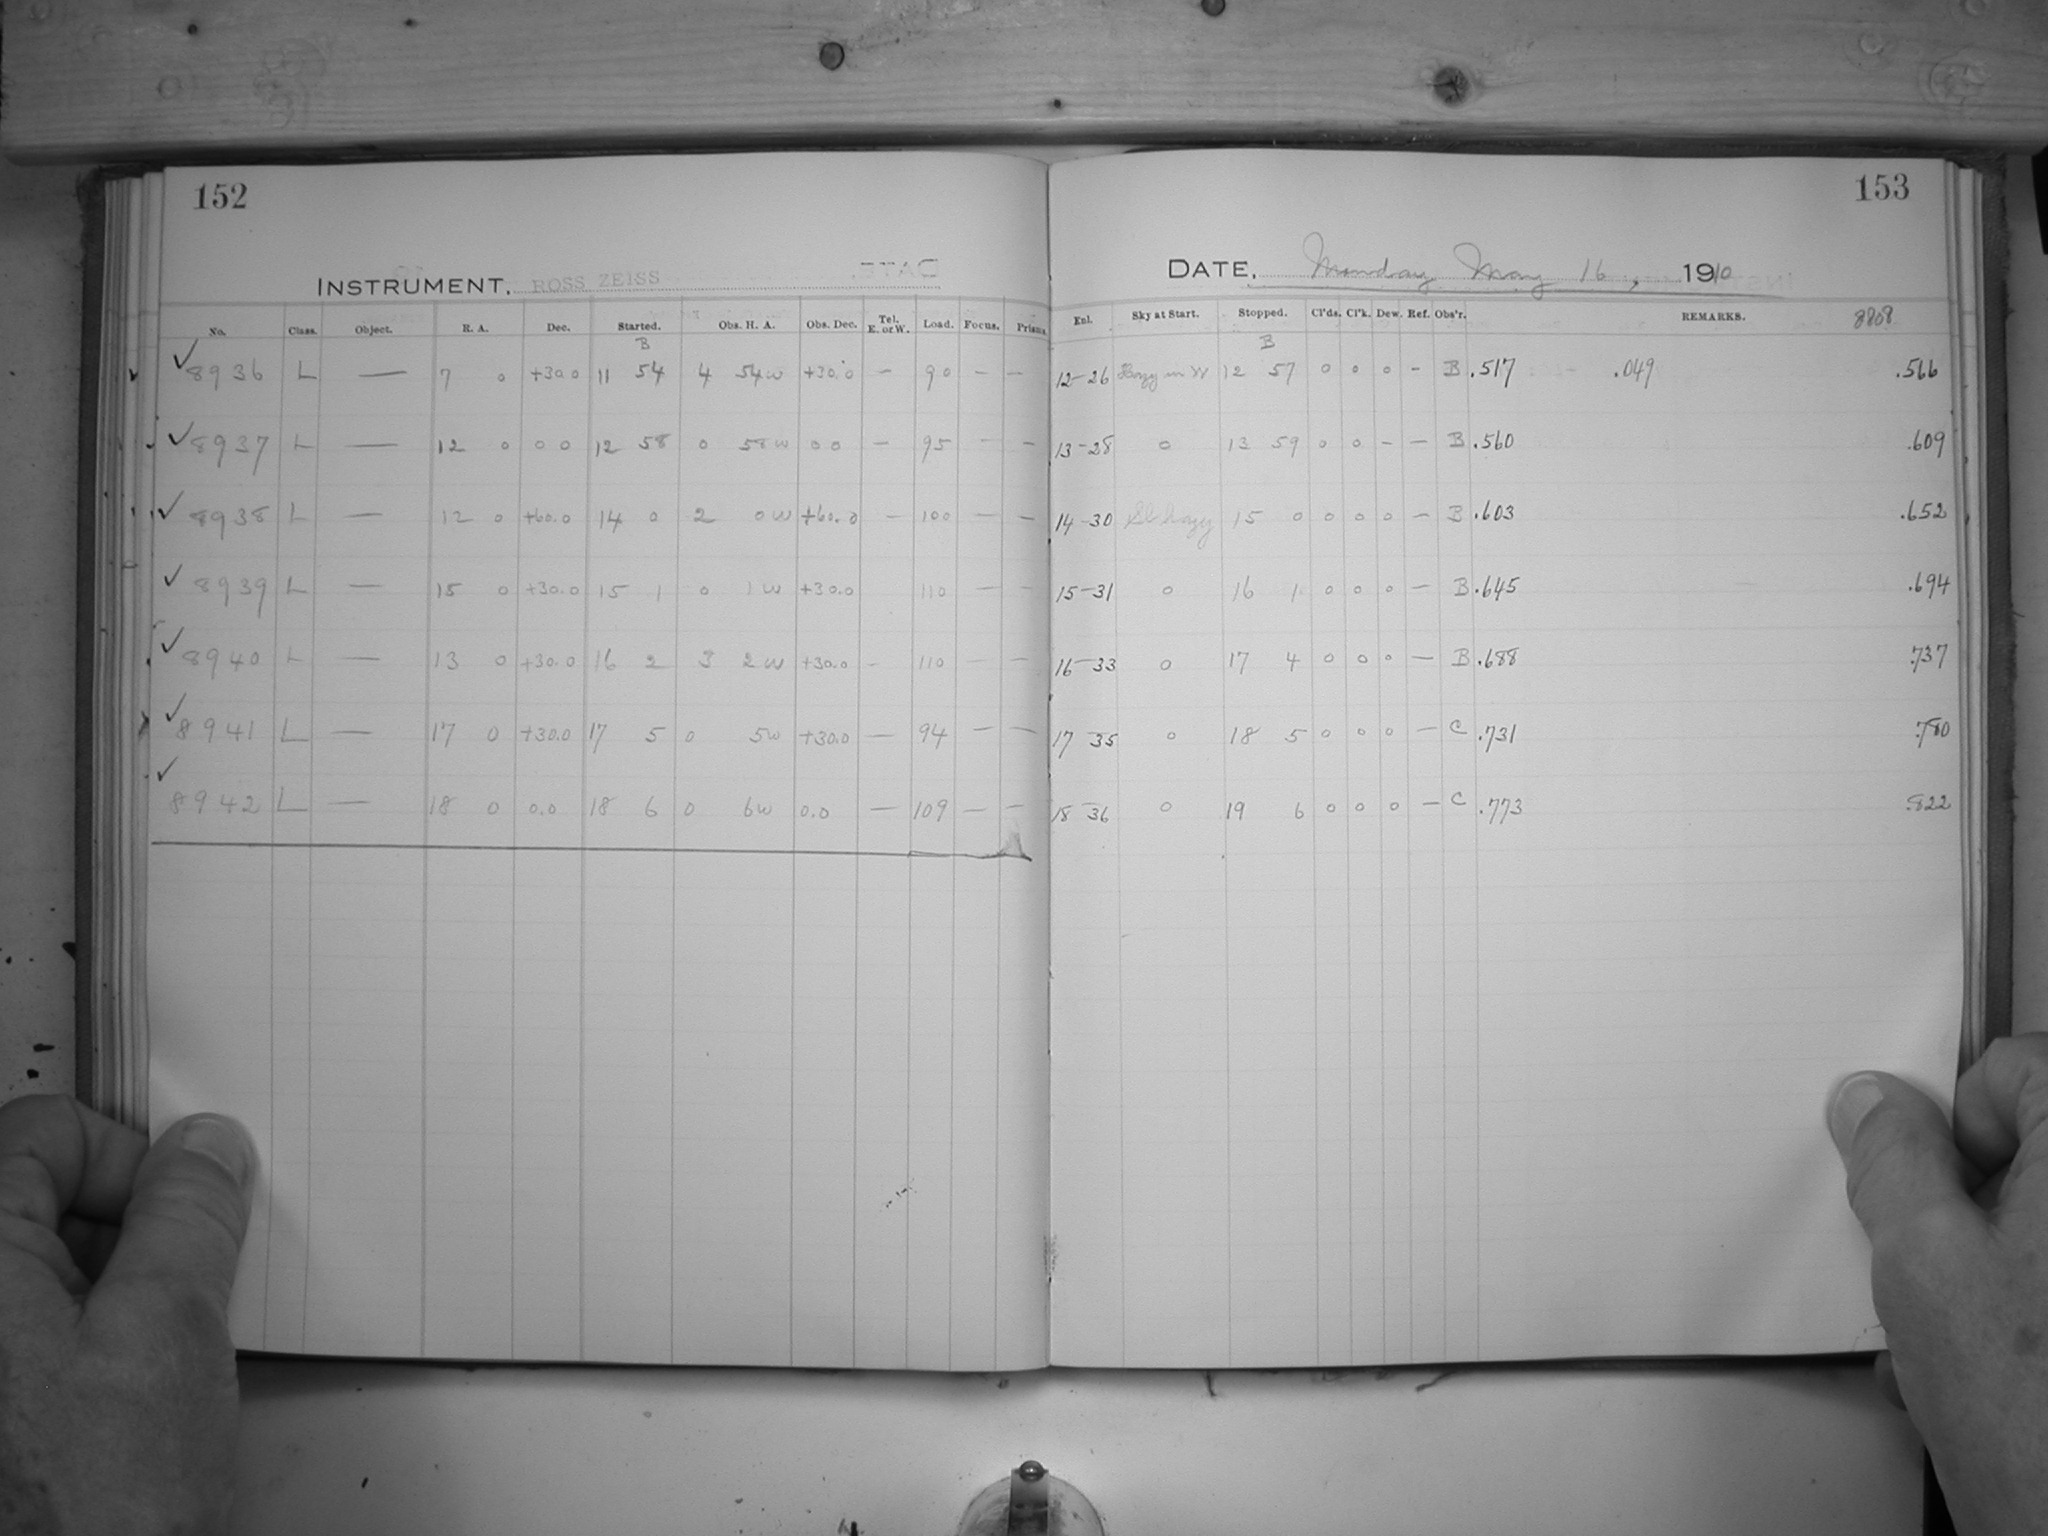 152
INSTRUMENT. ROSS ZEISS
No. Class. Object. R. A. Dec. Started. Obs. H. A. Obs. Dec. Tel. E. or W. Load. Focus. Prisms.
B
✓8936 L — 7 0 +30.0 11 54 4 54w +30.0 — 90 — —
✓8937 L — 12 0 0 0 12 58 0 58w 0 0 — 95 — —
✓8938 L — 12 0 +60.0 14 0 2 0w +60.0 — 100 — —
✓8939 L — 15 0 +30.0 15 1 0 1w +30.0 110 — —
✓8940 L — 13 0 +30.0 16 2 3 2w +30.0 — 110 — —
✓8941 L — 17 0 +30.0 17 5 0 5w +30.0 — 94 — —
✓8942 L — 18 0 0.0 18 6 0 6w 0.0 — 109 — —
153
DATE, Monday May 16, 1910
Enl. Sky at Start. Stopped. Cl'ds. Cl'k. Dew. Ref. Obs'r. REMARKS. 8808
B
12-26 Hazy in W 12 57 0 0 0 - B .517 .049 .566
13-28 0 13 59 0 0 - — B .560 .609
14-30 Sl. hazy 15 0 0 0 0 — B .603 .652
15-31 0 16 1 0 0 0 — B .645 .694
16-33 0 17 4 0 0 0 — B .688 .737
17-35 0 18 5 0 0 0 — C .731 .780
18-36 0 19 6 0 0 0 — C .773 .822